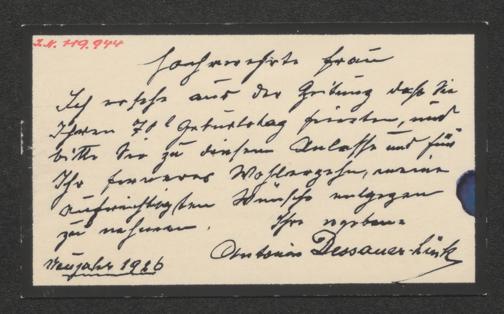 I.N. 119.944
Hochverehrte Frau
Ich ersehe aus der Zeitung daß Sie
Ihren 70t Geburtstag feierten, und
bitte Sie zu diesem Anlasse und für
Ihr ferneres Wohlergehn, meine
aufrichtigsten Wünsche entgegen
zu nehmen. Ihre ergeben=
Antonie Dessauer-Link
Neujahr 1926